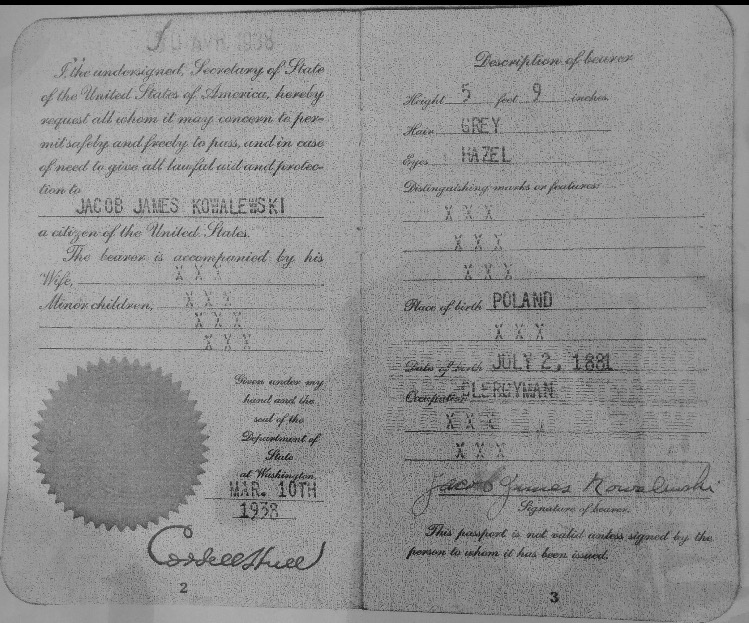 30 AVR 1938
I, the undersigned, Secretary of State
of the United States of America, hereby
request all whom it may concern to per-
mit safely and freely to pass, and in case
of need to give all lawful aid and protec-
tion to
JACOB JAMES KOWALEWSKI
a citizen of the United States.
The bearer is accompanied by his
Wife, X X X
Minor children, X X X
X X X
X X X
Given under my
hand and the
seal of the
Department of
State
at Washington,
MAR. 10TH
1938
Cordell Hull
2
Description of bearer
Height 5 feet 9 inches.
Hair GREY
Eyes HAZEL
Distinguishing marks or features:
X X X
X X X
X X X
Place of birth POLAND
X X X
Date of birth JULY 2, 1881
Occupation CLERGYMAN
X X X
X X X
Jacob James Kowalewski
Signature of bearer.
This passport is not valid unless signed by the
person to whom it has been issued.
3